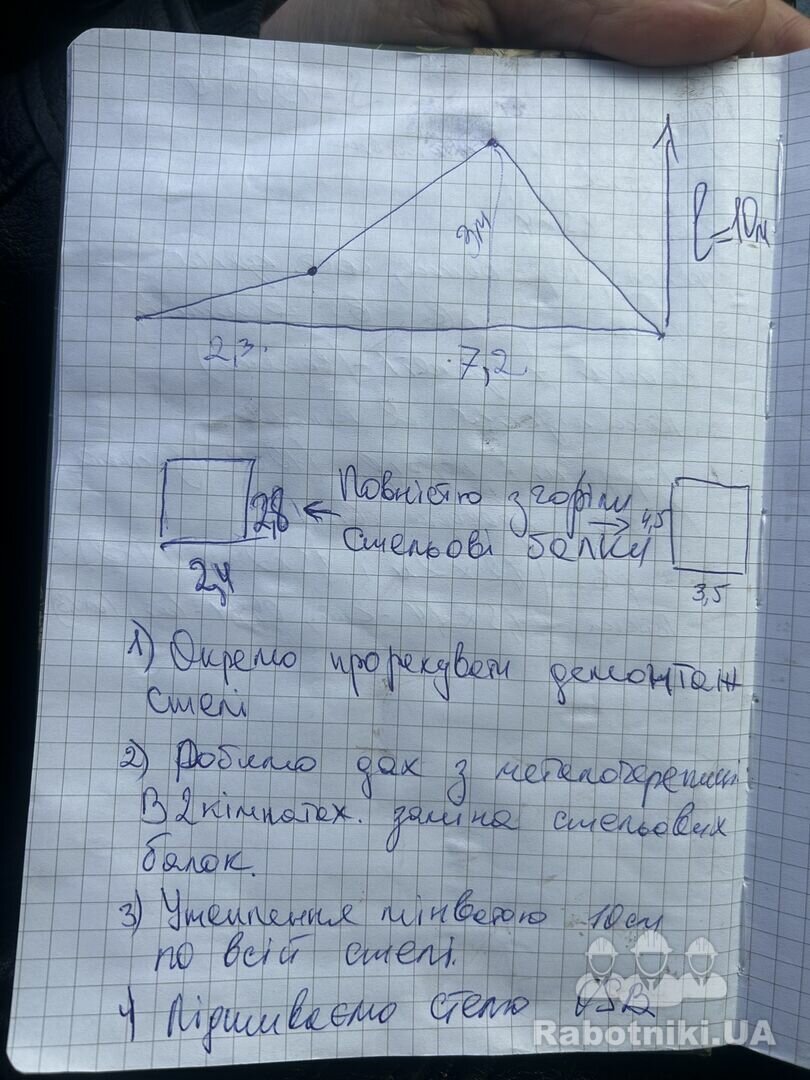 3,4
l=10м
2,3
7,2
2,8 ← Повністю згоріли
→ 4,5
стельові балки
2,4
3,5
1) Окремо прорахувати демонтаж
стелі
2) Робимо дах з металочерепиці
В 2 кімнатах. заміна стельових
балок.
3) Утеплення мінватою 10см
по всій стелі.
4) Підшиваємо стелю OSB
Rabotniki.UA